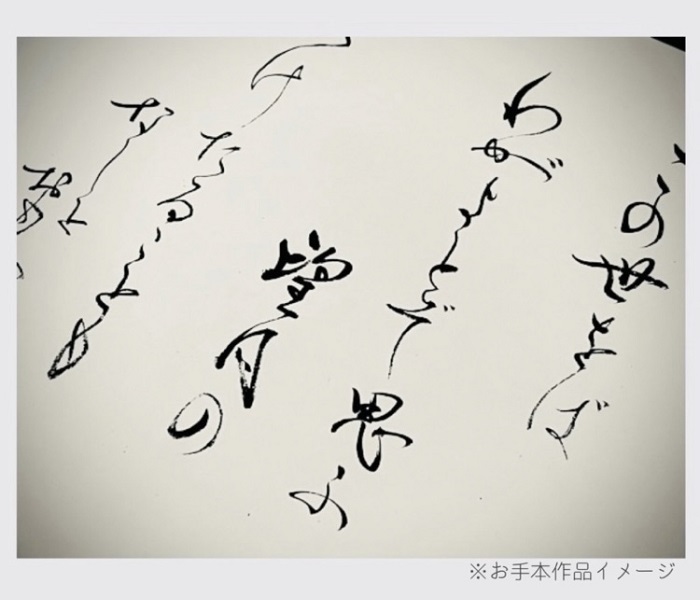 この世をば
わがよとぞ思ふ
望月の
けたることも
なしと
※お手本作品イメージ